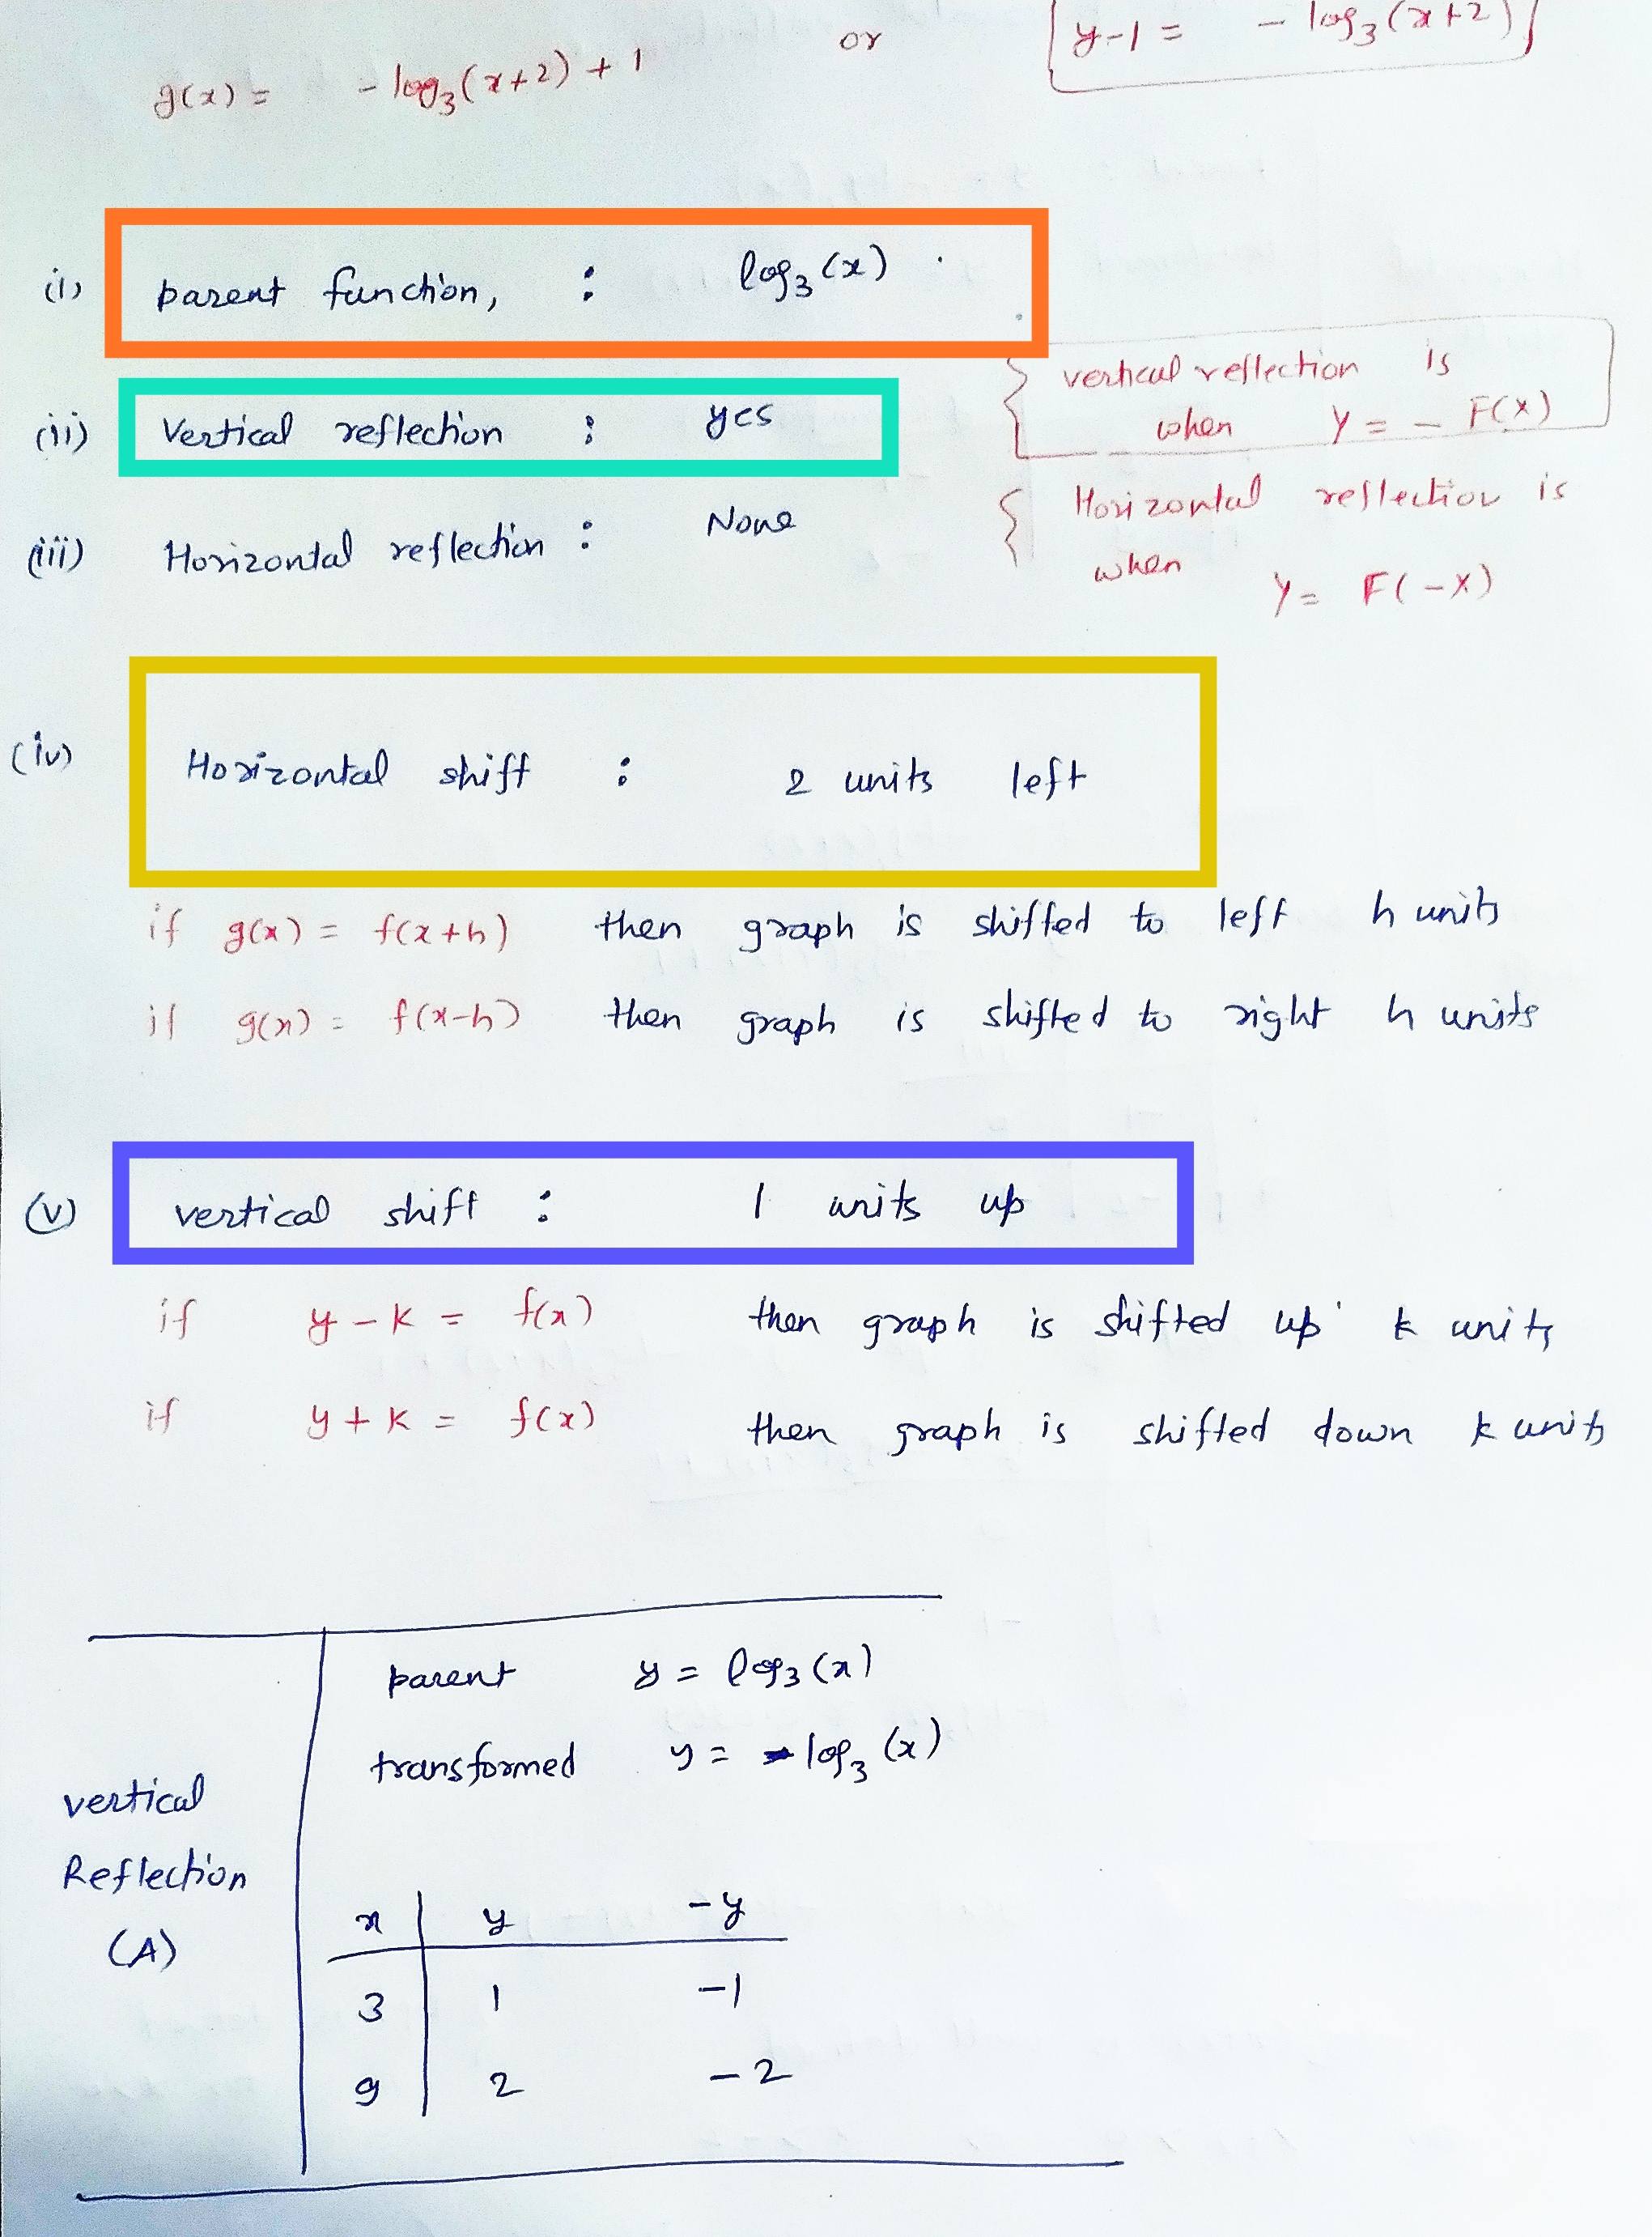 g(x) = - log₃(x+2) + 1 or y-1 = - log₃(x+2)
(i) parent function, : log₃(x)
(ii) Vertical reflection : yes
vertical reflection is
when Y = - F(X)
(iii) Horizontal reflection : None
Horizontal reflection is
when Y = F(-X)
(iv) Horizontal shift : 2 units left
if g(x) = f(x+h) then graph is shifted to left h units
if g(x) = f(x-h) then graph is shifted to right h units
(v) vertical shift : 1 units up
if y - k = f(x) then graph is shifted up k units
if y + k = f(x) then graph is shifted down k units
vertical
Reflection
(A)
parent y = log₃(x)
transformed y = -log₃(x)
x y -y
3 1 -1
9 2 -2